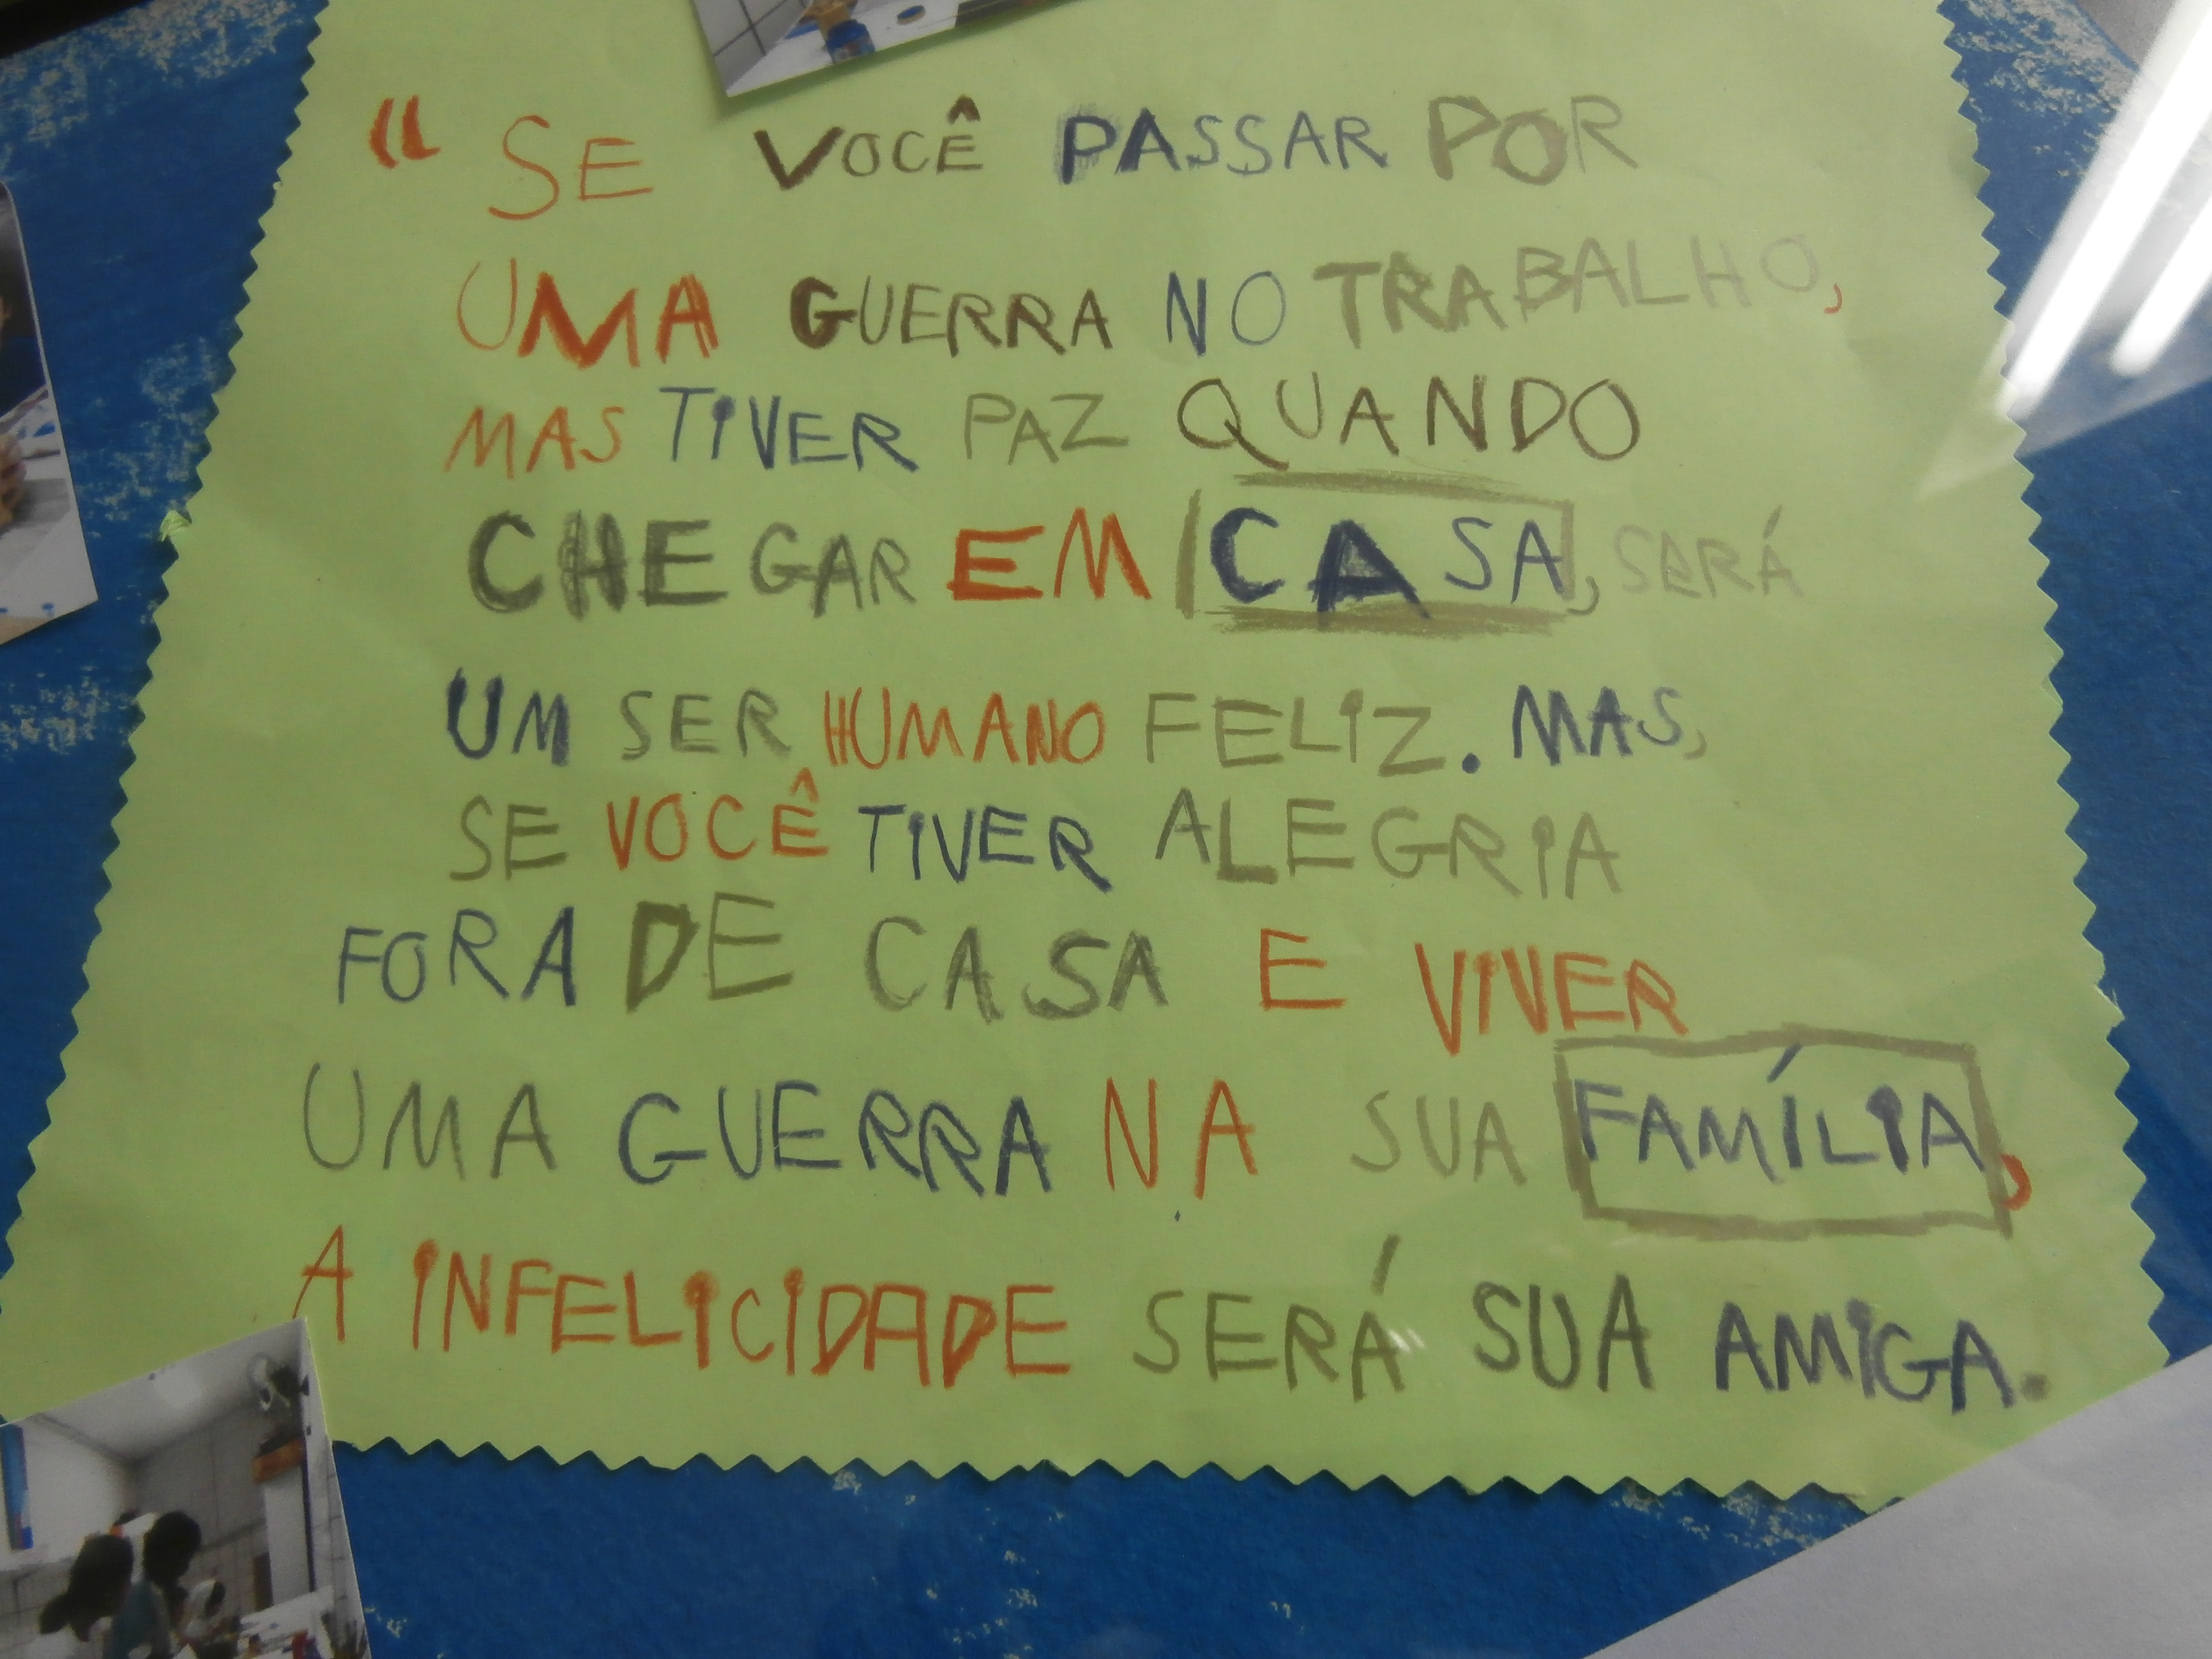 “ SE VOCÊ PASSAR POR
UMA GUERRA NO TRABALHO,
MAS TIVER PAZ QUANDO
CHEGAR EM CASA, SERÁ
UM SER HUMANO FELIZ. MAS,
SE VOCÊ TIVER ALEGRIA
FORA DE CASA E VIVER
UMA GUERRA NA SUA FAMÍLIA,
A INFELICIDADE SERÁ SUA AMIGA.